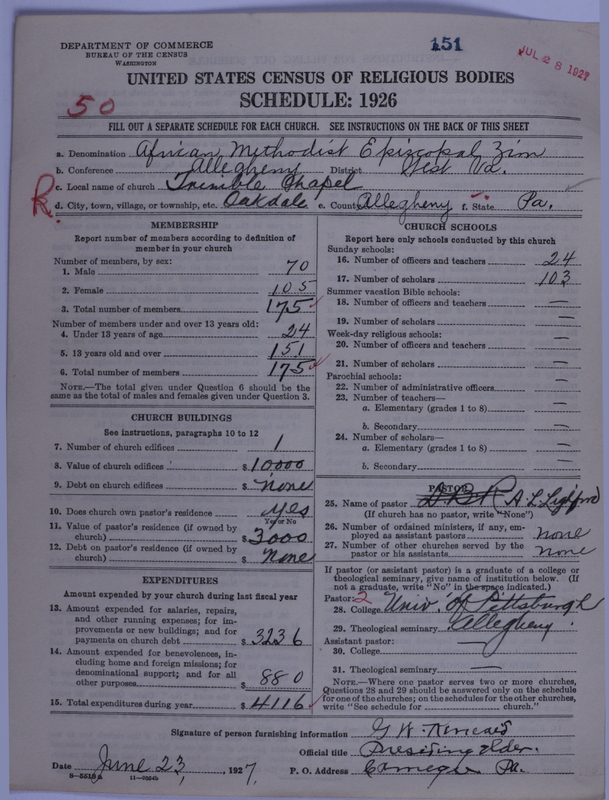 DEPARTMENT OF COMMERCE
BUREAU OF THE CENSUS
WASHINGTON
151
JUL 28 1927
UNITED STATES CENSUS OF RELIGIOUS BODIES
50
SCHEDULE: 1926
FILL OUT A SEPARATE SCHEDULE FOR EACH CHURCH. SEE INSTRUCTIONS ON THE BACK OF THIS SHEET
a. Denomination African Methodist Episcopal Zion
b. Conference Allegheny District West Va.
c. Local name of church Trimble Chapel
R.
d. City, town, village, or township, etc. Oakdale e. County Allegheny f. State Pa.
MEMBERSHIP
Report number of members according to definition of member in your church
Number of members, by sex:
1. Male 70
2. Female 105
3. Total number of members 175
Number of members under and over 13 years old:
4. Under 13 years of age 24
5. 13 years old and over 151
6. Total number of members 175
NOTE.—The total given under Question 6 should be the same as the total of males and females given under Question 3.
CHURCH BUILDINGS
See instructions, paragraphs 10 to 12
7. Number of church edifices 1
8. Value of church edifices $ 10000
9. Debt on church edifices $ None
10. Does church own pastor's residence yes
Yes or No
11. Value of pastor's residence (if owned by church) $ 3000
12. Debt on pastor's residence (if owned by church) $ None
EXPENDITURES
Amount expended by your church during last fiscal year
13. Amount expended for salaries, repairs, and other running expenses; for improvements or new buildings; and for payments on church debt $ 3236
14. Amount expended for benevolences, including home and foreign missions; for denominational support; and for all other purposes $ 880
15. Total expenditures during year $ 4116
CHURCH SCHOOLS
Report here only schools conducted by this church
Sunday schools:
16. Number of officers and teachers 24
17. Number of scholars 103
Summer vacation Bible schools:
18. Number of officers and teachers —
19. Number of scholars —
Week-day religious schools:
20. Number of officers and teachers —
21. Number of scholars —
Parochial schools:
22. Number of administrative officers —
23. Number of teachers—
a. Elementary (grades 1 to 8) —
b. Secondary —
24. Number of scholars—
a. Elementary (grades 1 to 8) —
b. Secondary —
PASTOR
25. Name of pastor A L
(If church has no pastor, write "None")
26. Number of ordained ministers, if any, employed as assistant pastors none
27. Number of other churches served by the pastor or his assistants none
If pastor (or assistant pastor) is a graduate of a college or theological seminary, give name of institution below. (If not a graduate, write "No" in the space indicated.)
Pastor: 2
28. College Univ. of Pittsburgh
29. Theological seminary Allegheny
Assistant pastor:
30. College —
31. Theological seminary —
NOTE.—Where one pastor serves two or more churches, Questions 28 and 29 should be answered only on the schedule for one of the churches; on the schedules for the other churches, write "See schedule for church."
Signature of person furnishing information G W
Official title Presiding elder.
Date June 23, 1927.
P. O. Address Carnegie Pa.